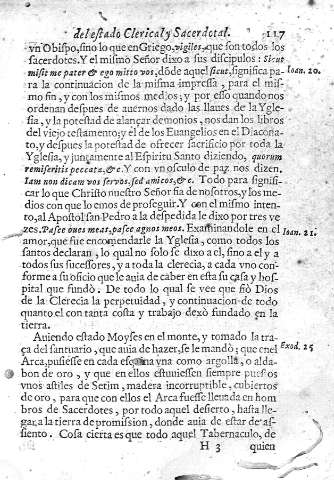 del estado Clerical y Sacerdotal. 117
vn Obispo, sino lo que en Griego, vigiles, que son todos los
sacerdotes. Y el mismo Señor dixo a sus discipulos: Sicut
misit me pater & ego mitto vos, dõde aquel sicut, significa pa- Ioan. 20.
ra la continuacion de la misma impressa, para el mis-
mo fin, y con los mismos medios; y por esso quando nos
ordenan despues de auernos dado las llaues de la Ygle-
sia, y la potestad de alançar demonios, nos dan los libros
del viejo testamento; y el de los Euangelios en el Diacona-
to, y despues la potestad de ofrecer sacrificio por toda la
Yglesia, y juntamente al Espiritu Santo diziendo, quorum
remiseritis peccata, &c. Y con vn osculo de paz nos dizen.
Iam non dicam vos servos, sed amicos, &c. Todo para signifi-
car lo que Christo nuestro Señor fia de nosotros, y los me-
dios con lo que emos de proseguir. Y con el mismo inten-
to, al Apostol san Pedro a la despedida le dixo por tres ve
zes. Pasce oues meas, pasce agnos meos. Examinandole en el Ioan. 21.
amor, que fue encomendarle la Yglesia, como todos los
santos declaran, lo qual no solo se dixo a el, sino a el y a
todos sus sucessores, y a toda la clerecia, a cada vno con-
forme a su oficio que le auia de caber en esta su casa y hos-
pital que fundò. De todo lo qual se vee que fió Dios
de la Clerecia la perpetuidad, y continuacion de todo
quanto el con tanta costa y trabajo dexò fundado en la
tierra.
Auiendo estado Moyses en el monte, y tomado la tra-
ça del santuario, que auia de hazer, se le mandò; que en el Exod. 25
Arca, pusiesse en cada esquina vna como argolla, o alda-
bon de oro, y que en ellos estuuiessen siempre puestos
vnos astiles de Setim, madera incorruptible, cubiertos
de oro, para que con ellos el Arca fuesse lleuada en hom
bros de Sacerdotes, por todo aquel desierto, hasta lle-
gar a la tierra de promission, donde auia de estar de as-
siento. Cosa cierta es que todo aquel Tabernaculo, de
H 3 quien